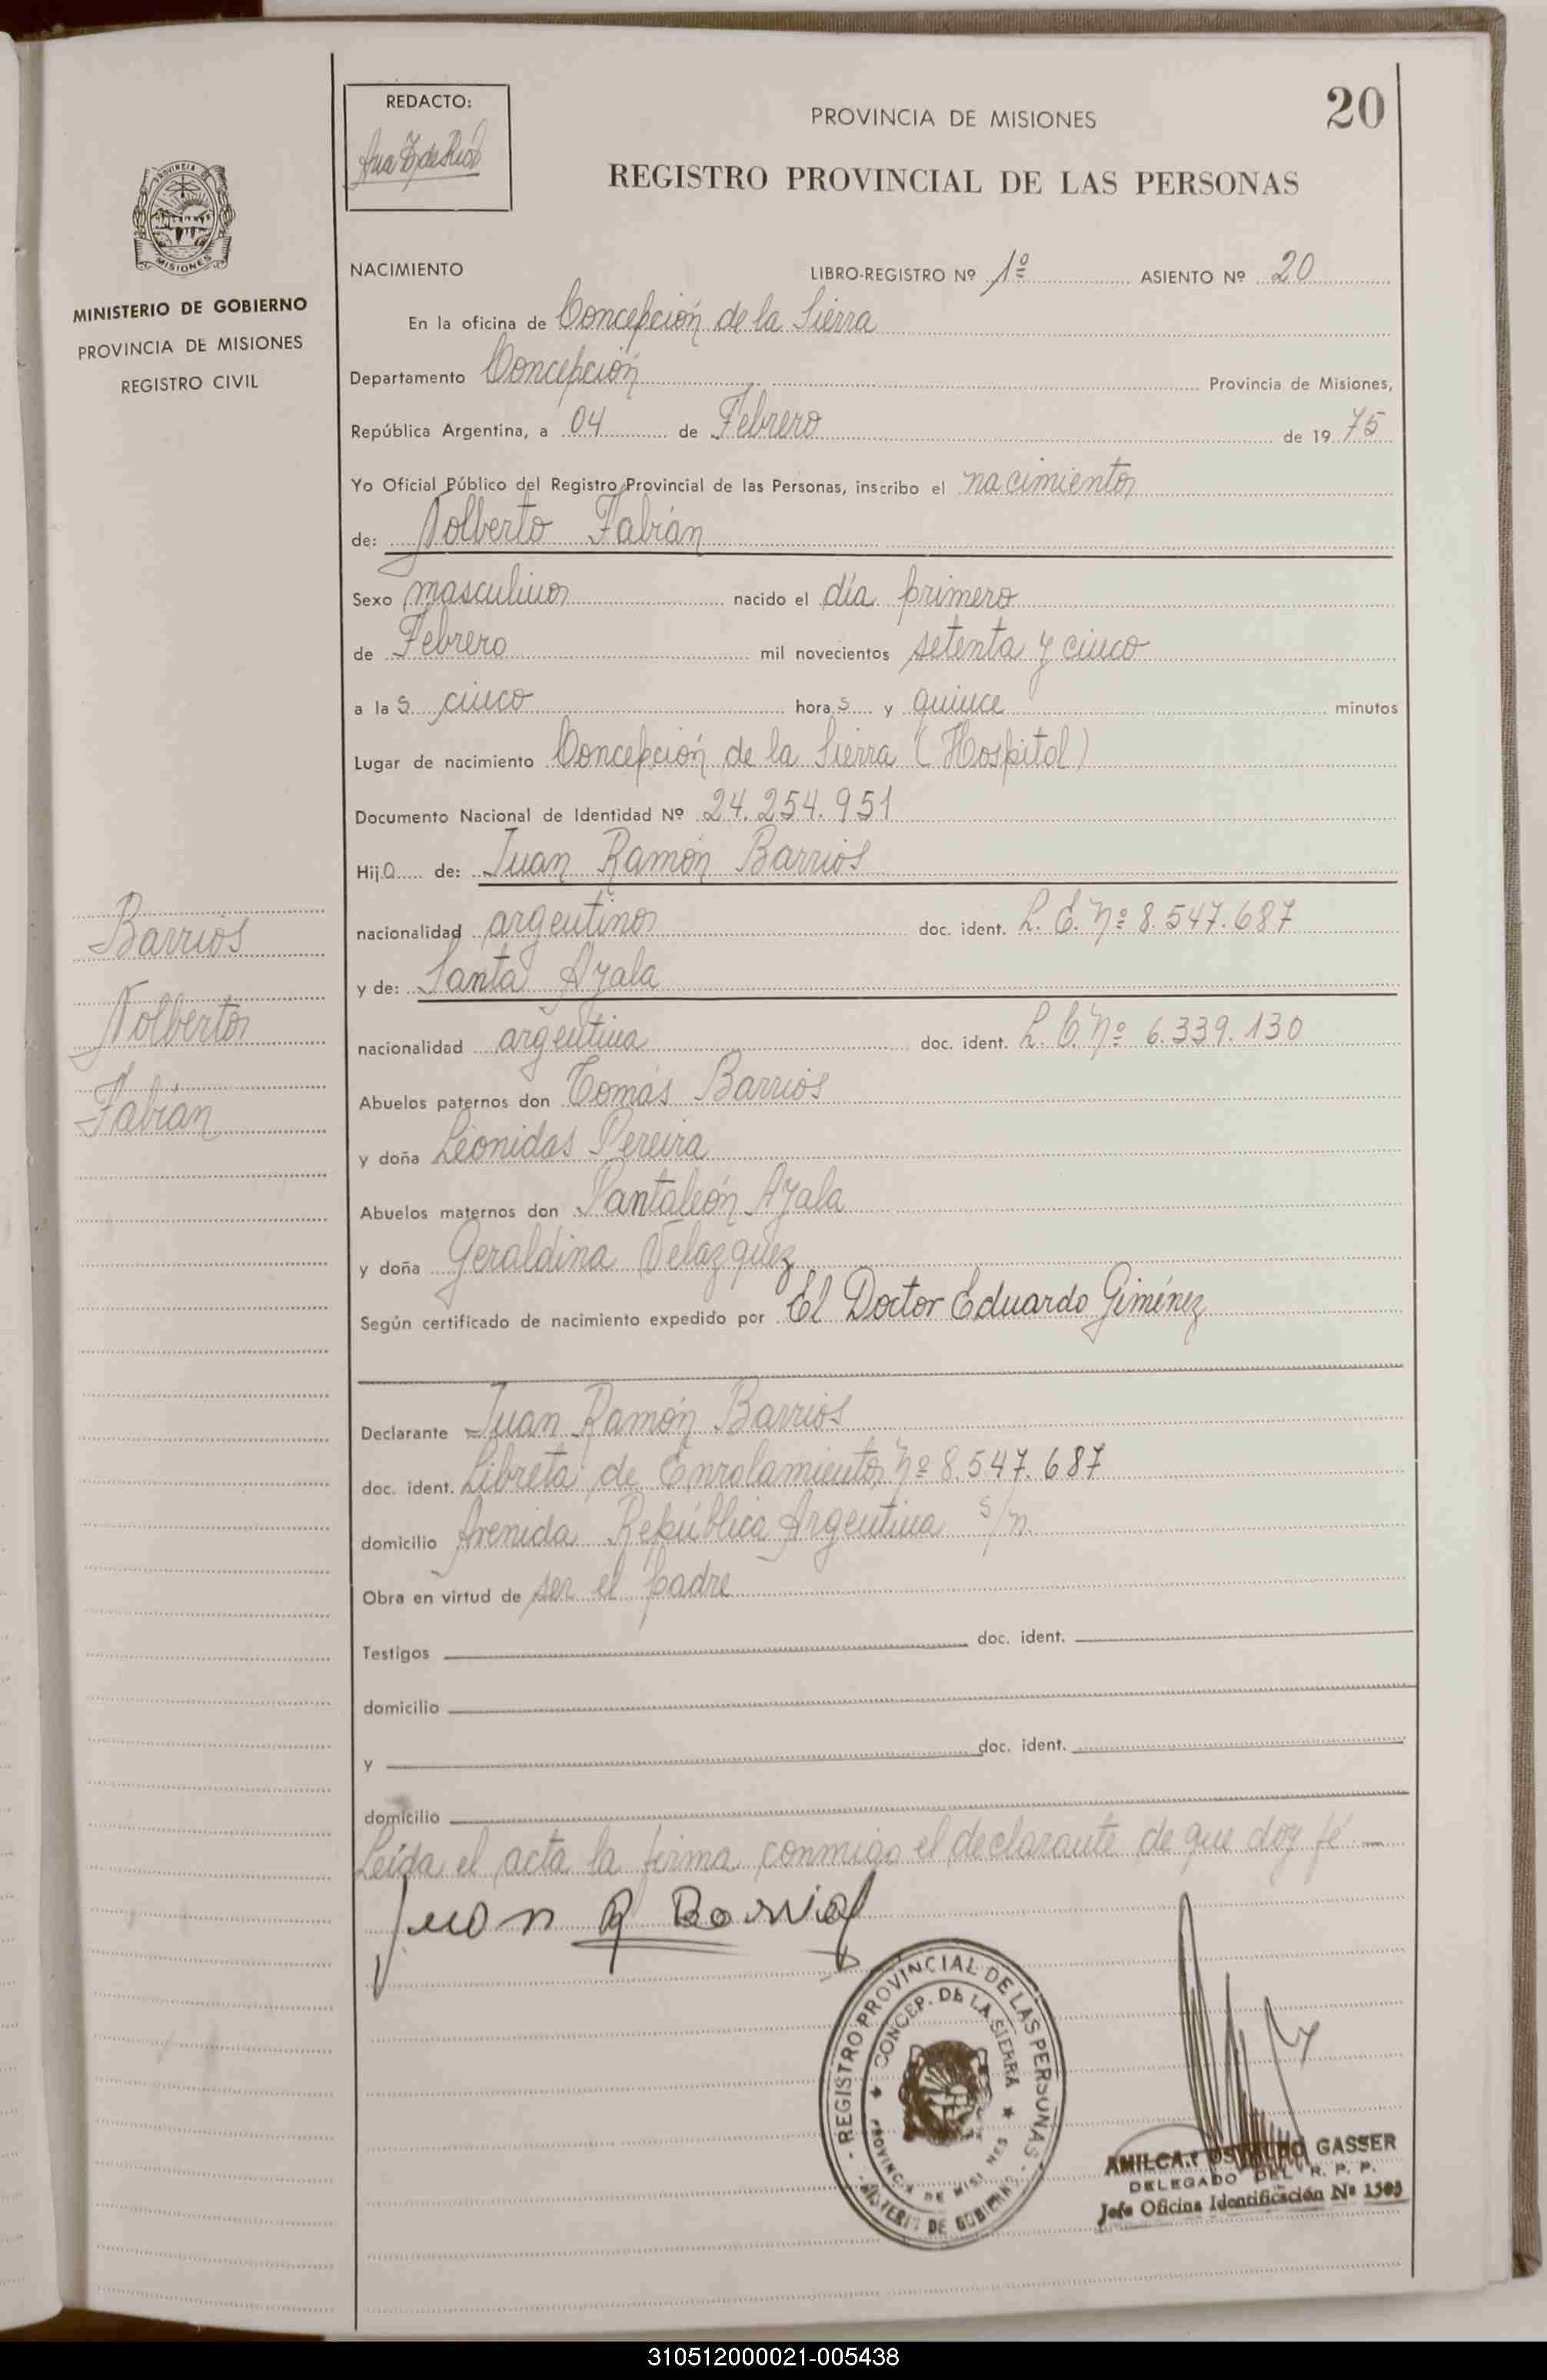 REDACTO:
PROVINCIA DE MISIONES
20
REGISTRO PROVINCIAL DE LAS PERSONAS
PROVINCIA DE
MISIONES
MINISTERIO DE GOBIERNO
PROVINCIA DE MISIONES
REGISTRO CIVIL
NACIMIENTO LIBRO-REGISTRO Nº 1º ASIENTO Nº 20
En la oficina de Concepción de la Sierra
Departamento Concepción Provincia de Misiones,
República Argentina, a 04 de Febrero de 1975
Yo Oficial Público del Registro Provincial de las Personas, inscribo el nacimiento
de: Nolberto Fabián
Sexo masculino nacido el día primero
de Febrero mil novecientos setenta y cinco
a las cinco horas y quince minutos
Lugar de nacimiento Concepción de la Sierra (Hospital)
Documento Nacional de Identidad Nº 24.254.951
Hijo de: Juan Ramón Barrios
nacionalidad argentino doc. ident. L. E. nº 8.547.687
y de: Santa Ayala
nacionalidad argentina doc. ident. L. C. nº 6.339.130
Abuelos paternos don Tomás Barrios
y doña Leonidas Pereira
Abuelos maternos don Pantaleón Ayala
y doña Geraldina Velazquez
Según certificado de nacimiento expedido por El Doctor Eduardo Giménez
Barrios
Nolberto
Fabián
Declarante Juan Ramón Barrios
doc. ident. Libreta de Enrolamiento nº 8.547.687
domicilio Avenida República Argentina s/n
Obra en virtud de ser el padre
Testigos doc. ident.
domicilio
y doc. ident.
domicilio
Leída el acta la firma conmigo el declarante de que doy fé.
Juan R Barrios
REGISTRO PROVINCIAL DE LAS PERSONAS
CONCEP. DE LA SIERRA
PROVINCIA DE MISIONES
MINISTERIO DE GOBIERNO
GASSER
DELEGADO DEL R. P. P.
Jefe Oficina Identificación Nº
310512000021-005438